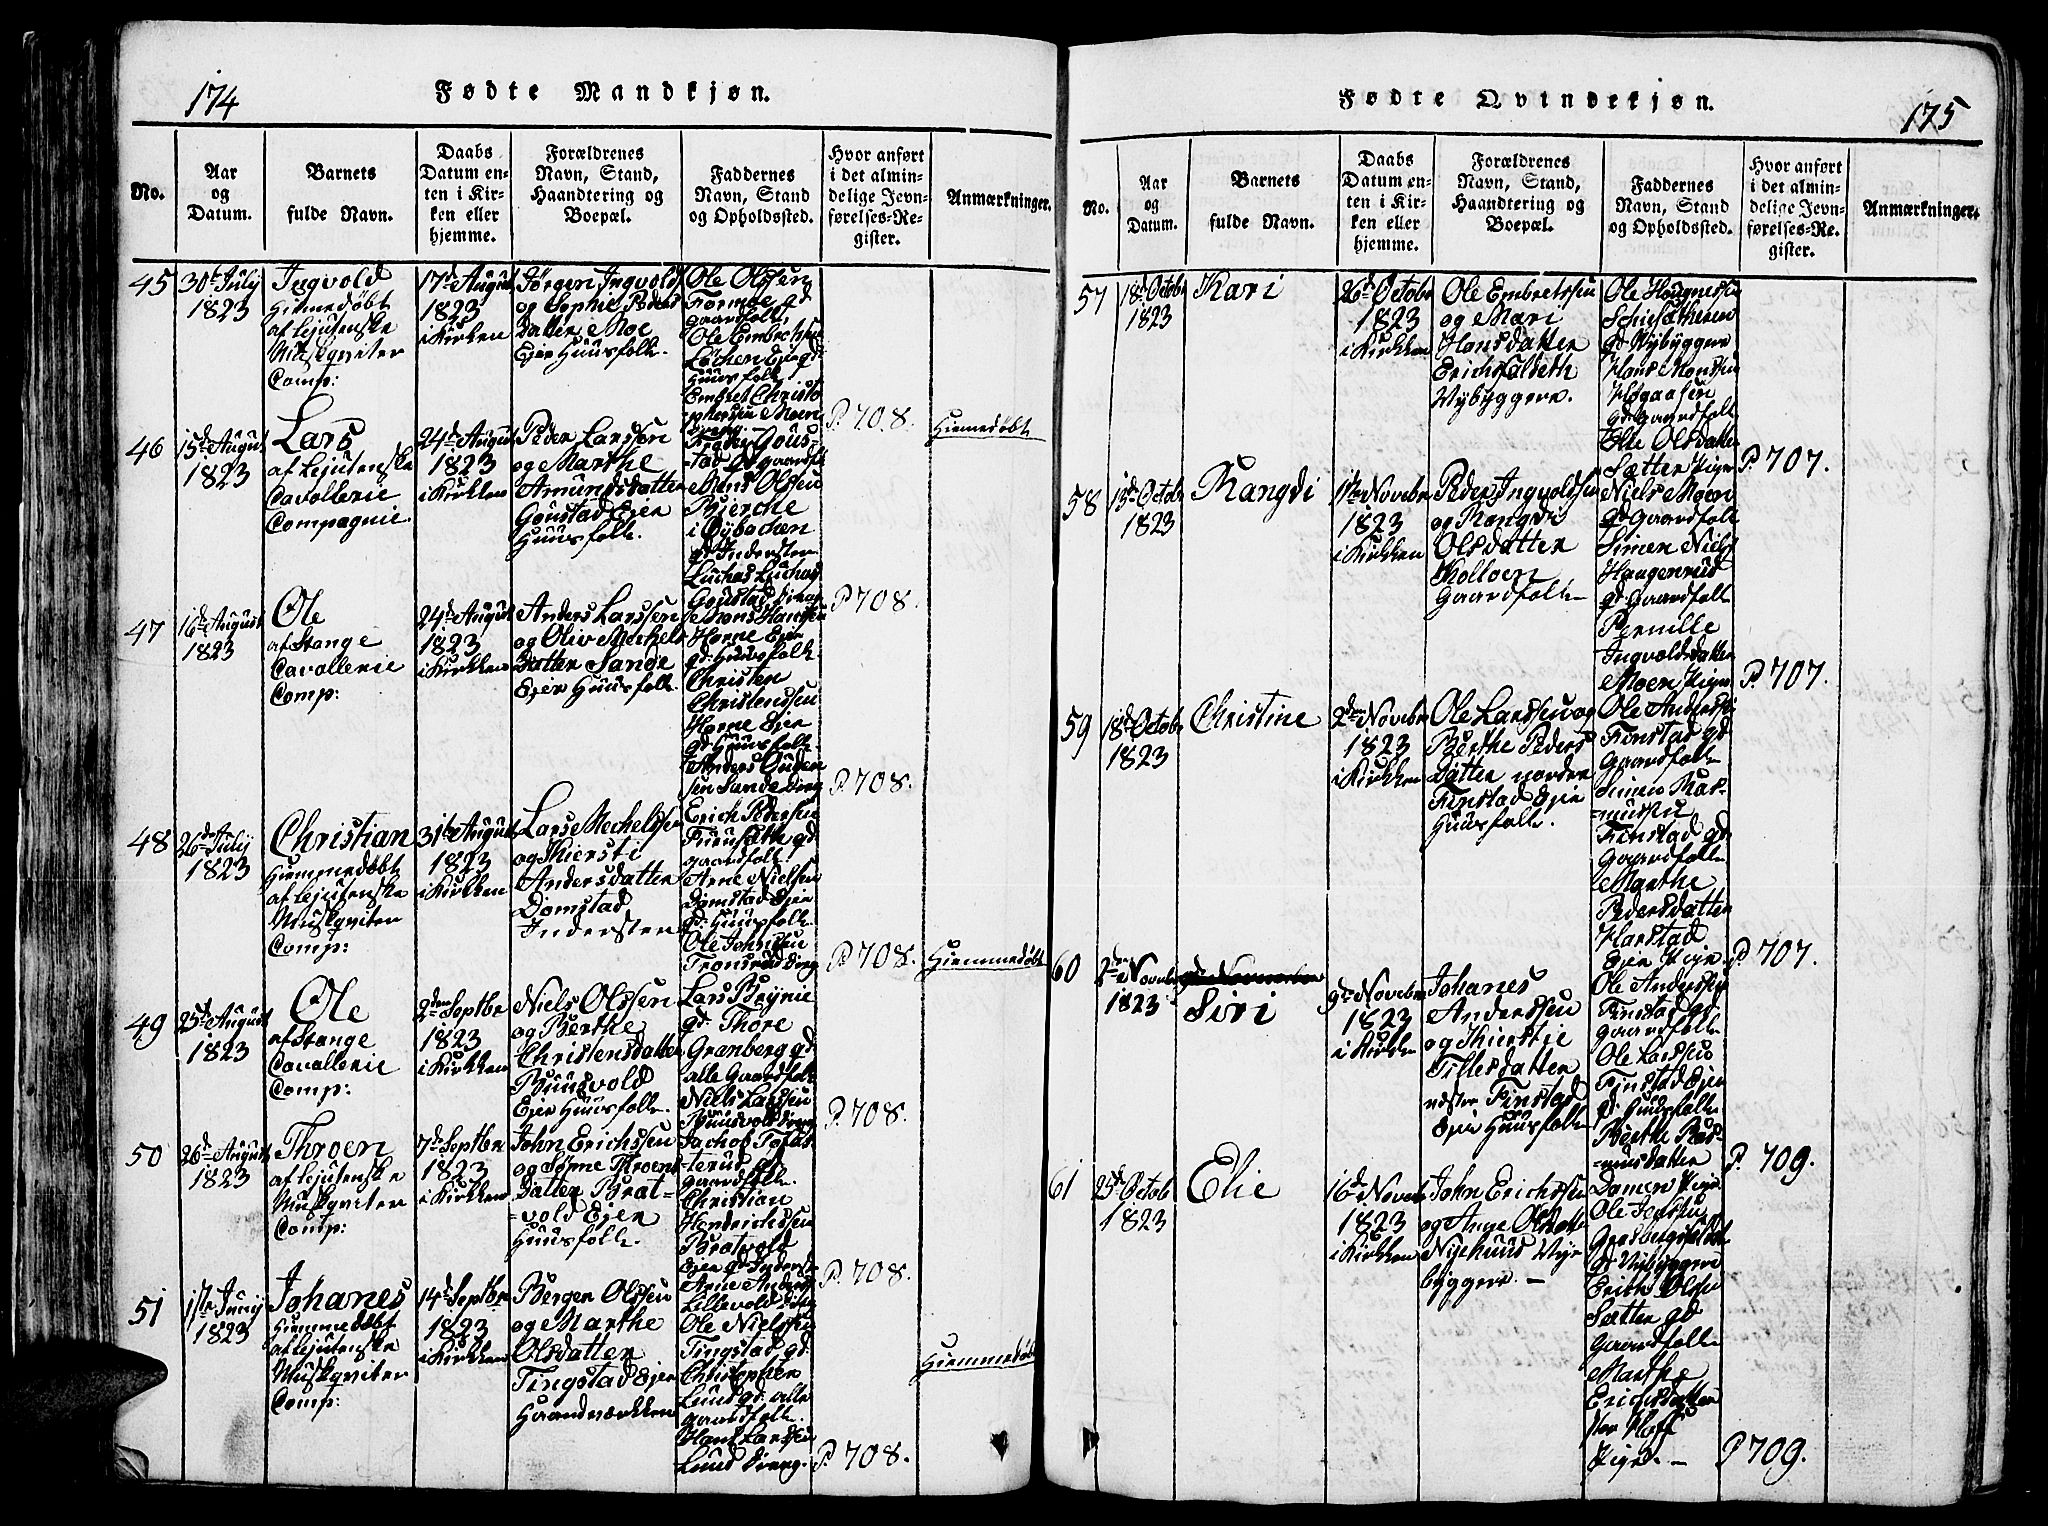 174
Fødte Mandkjøn.
No.
Aar
og
Datum.
Barnets
fulde Navn.
Daabs
Datum en-
ten i Kir-
ken eller
hjemme.
Forældrenes
Navn, Stand,
Haandtering og
Boepæl.
Faddernes
Navn, Stand
og Opholdssted.
Hvor anført
i det almin-
delige Jevn-
førelses-Re-
gister.
Anmærkninger.
45
30te Julij
1823
Ingvold
Hiemedøbt
af Lejutenske
Musqviter
Comp:
17d August
1823
i Kirken
Jørgen Ingvolds
og Sophie Peders
Datter Moe
Ejer Huusfolk.
Ole Olssen
gd
gaardfolk
Ole Embretssen
Løchen Ejer gd
Huusfolk
Embret Christo
-phersen Moen
P. 708.
Hiemedøbt
46
15d August
1823
Lars
af Lejutenske
Cavallerie
Compagnie.
24d August
1823
i Kirkken
Peder Larssen
og Marthe
Amundsdatter
Goustad Ejer
Huusfolk.
Gous-
tad gd gaardfolk
Mons Olssen
Bjerche
gd Indersten
Luchas Luchas
Goustad
P. 708.
47
16de August
1823
Ole
af Stange
Cavallerie
Comp:
24d August
1823
i Kirkken
Anders Larssen
og Oliv Michels
Datter Sande
Ejer Huusfolk.
Mons Hanssen
Horne Ejer
gd. Huusfolk.
Christen
Christenssen
Horne Ejer
gd. Huusfolk.
Anders Ouden
sen Sande
P. 708.
48
26de Julij
1823
Christian
Hiemmedøbt
af Lejutenske
Muskqviter
Comp:
31te August
1823
i Kirkken
Lars Michelssen
og Kiersti
Andersdatter
Domstad
Indersten
Erich Pederssen
Furusæth gd
gaardfolk
Arne Nielsen
Domstad Ejer
gd. Huusfolk.
Ole Johnssen
Tronsrud
P. 708.
Hiemmedøbt
49
25d August
1823
Ole
af Stange
Cavallerie
Comp:
2den Septbr
1823
i Kirkken
Niels Olssen
og Berthe
Christensdatter
Ruusvold
Ejer Huusfolk.
Lars
gd. Thore
Granberg gd.
alle Gaardfolk
Niels Larssen
Ruusvold
P. 708.
50
26d August
1823
Throen
af Lejutenske
Muskqviter
Comp:
7d Septbr
1823
i Kirkken
John Erichssen
og Sørne Throens
Datter Brat-
-vold Ejer
Huusfolk.
Jachob Tofas-
-terud gd.
gaardfolk.
Christian
Hendrichssen
Bratvold
Ejer gd Inderste
Arne Anders
Lillevold
P. 708.
51
1ste Junij
1823
Johanes
Hiemmedøbt
af Lejutenske
Muskqviter
Comp:
14d Septbr
1823
i Kirkken
Bergen Olssen
og Marthe
Olsdatter
Tingstad Ejer
Haandværkken
Ole Nielssen
Tingstad gd.
Christopher
Lund gd. alle
gaardfolk.
Hans Larssen
Lund Dreng.
P. 708.
Hiemmedøbt
175
Fødte Qvindekjøn.
No.
Aar
og
Datum.
Barnets
fulde Navn.
Daabs
Datum en-
ten i Kir-
ken eller
hjemme.
Forældrenes
Navn, Stand,
Haandtering og
Boepæl.
Faddernes
Navn, Stand
og Opholdssted.
Hvor anført
i det almin-
delige Jevn-
førelses-Re-
gister.
Anmærkninger.
57
18d Octobr
1823
Kari
26d Octobr
1823
i Kirkken
Ole Embretssen
og Mari
Hansdatter
Erichsæteth
Nybyggere.
Ole
gd Nybyggere
Hans Monssen
gd. Gaardfolk
Elie Olsdatter
Sætter Pige
P. 707.
58
15d Octobr
1823
Rangdi
1ste Novebr
1823
i Kirkken
Peder Ingvoldssen
og Rangdi
Olsdatter
Kolloen
Gaardfolk
Niels Moen
gd. Gaardfolk
Simen Niels
Haugenrud
gd. Gaardfolk
Pernille
Ingvoldsdatter
Moen Pige
P. 707.
59
18d Octobr
1823
Christine
2den Novebr
1823
i Kirkken
Ole Larssen og
Berthe Peders
Datter norden
Finstad Ejer
Huusfolk.
Ole Anderssen
Finstad gd
Gaardfolk
Simen Ras-
-mussen
Finstad gd.
Gaardfolk
Marthe
Pedersdatter
Harstad
Ejer Pige.
P. 707.
60
2den Novebr
1823
Siri
9d Novebr
1823
i Kirkken
Johanes
Anderssen
og Kierstie
Tillesdatter
Finstad
Ejer Huusfolk
Ole Anderssen
Finstad gd
gaardfolk
Ole Larssen
Finstad Ejer
gd. Huusfolk
Berthe Ras-
-musdatter
Domen Pige
P. 709.
61
25d Octob
1823
Elie
16d Novebr
1823
i Kirkken
John Erichssen
og Anne Olsdatter
Nijehuus Nije
byggere. —
Ole Jenssen
gd Nybyggere
Erich Olssen
Sætter gd
gaardfolk
Marthe
Erichsdatter
Hoff
Pige. —
P. 709.